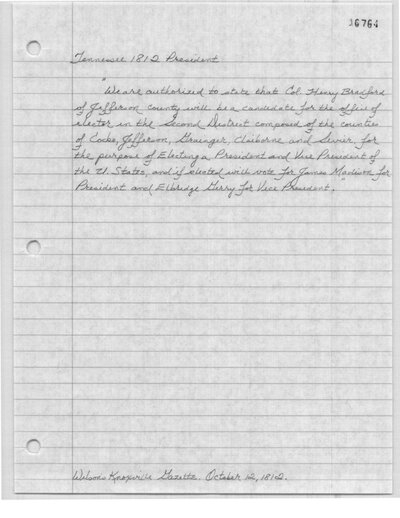 16764
Tennessee 1812 President
"We are authorized to state that Col. Henry Bradford
of Jefferson county will be a candidate for the office of
elector in the Second District composed of the counties
of Cocke, Jefferson, Grainger, Claiborne and Sevier, for
the purpose of Electing a President and Vice President of
the U. States, and if elected will vote for James Madison for
President and Elbridge Gerry for Vice President."
Wilsons Knoxville Gazette. October 12, 1812.